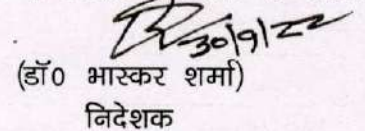 30/9/22
(डॉ0 भास्कर शर्मा)
निदेशक